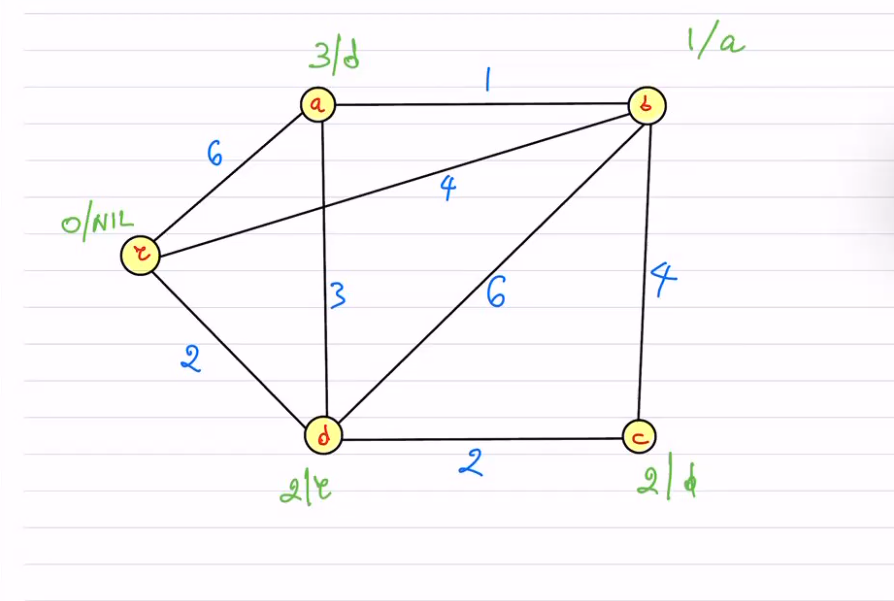 3/d
1/a
1
a
b
6
4
0/NIL
r
3
6
4
2
d
c
2
2/r
2/d